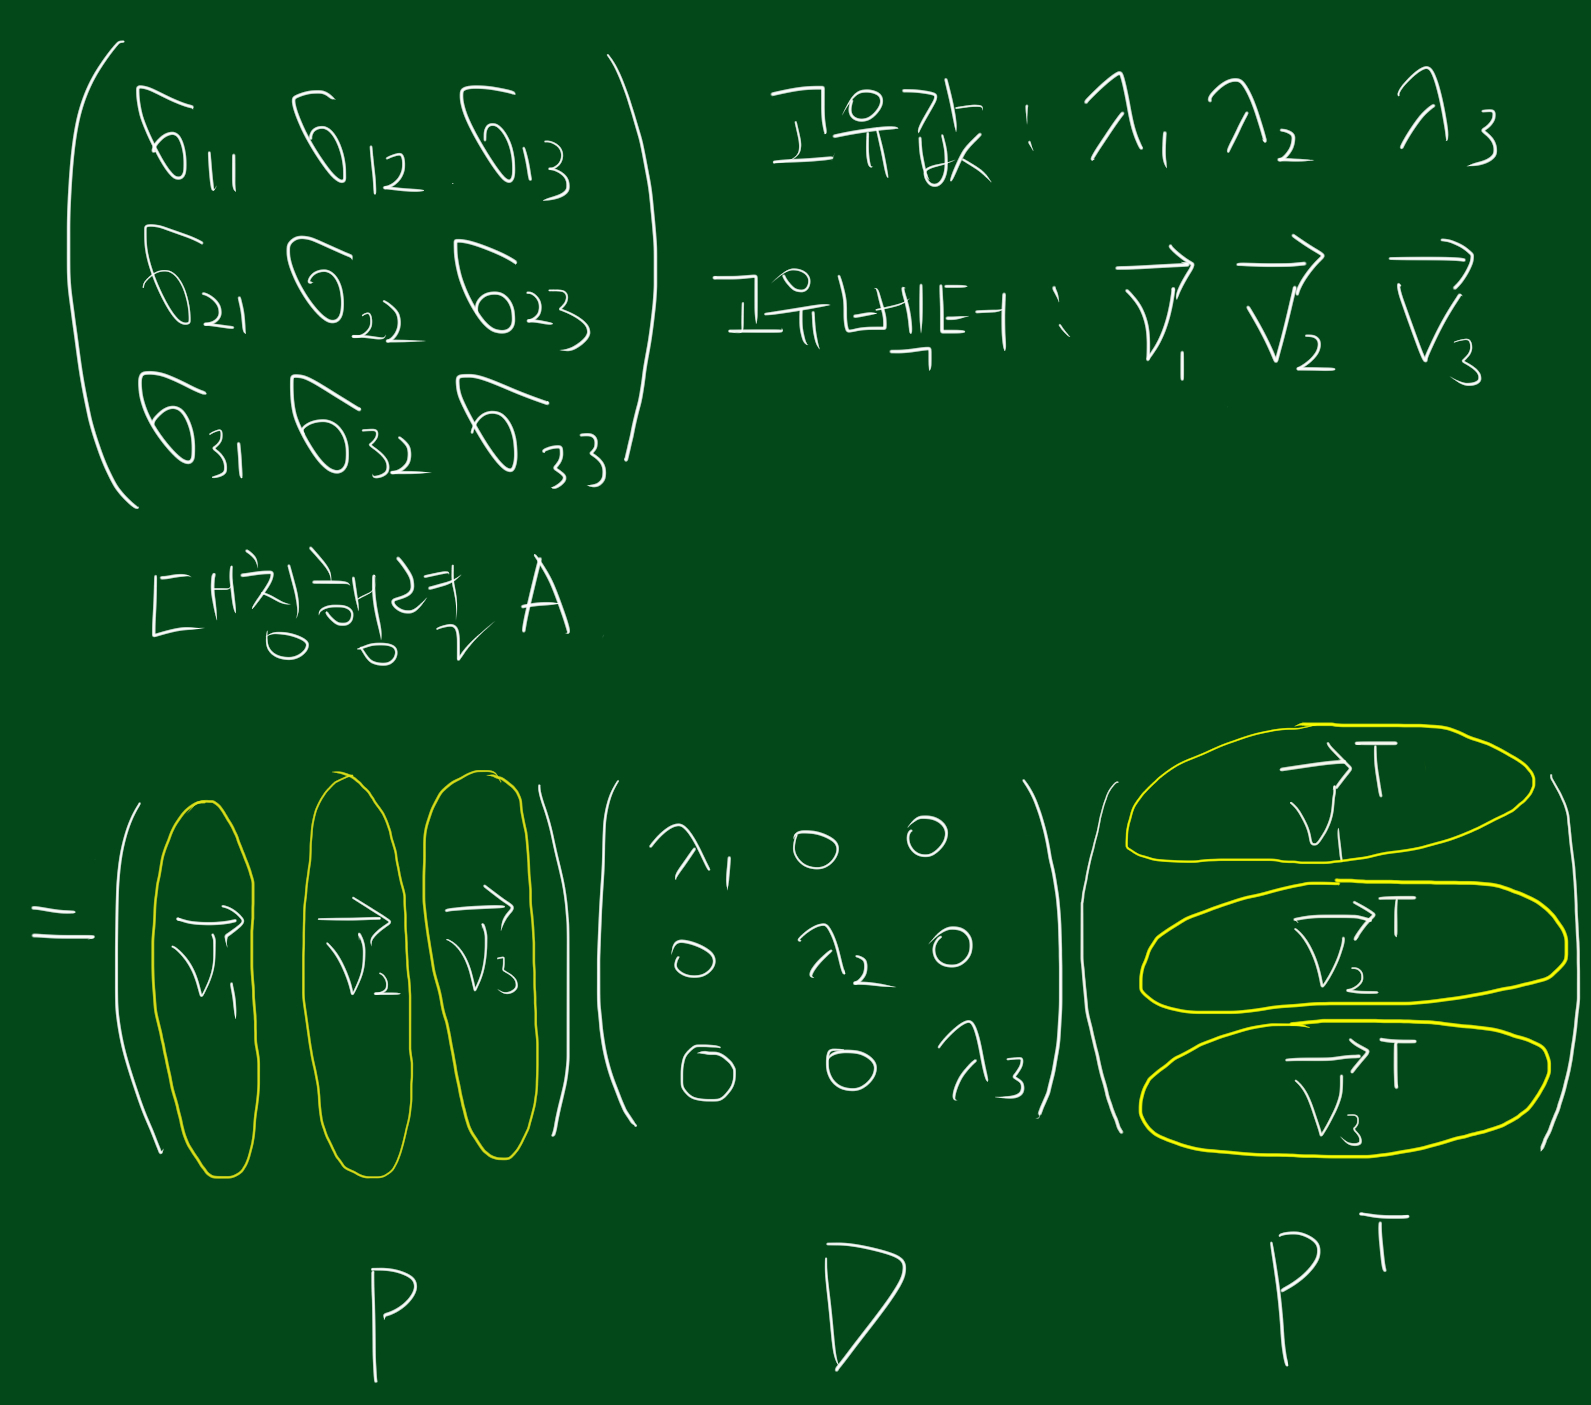 σ11 σ12 σ13
σ21 σ22 σ23
σ31 σ32 σ33
고유값 : λ1 λ2 λ3
고유벡터 : v⃗1 v⃗2 v⃗3
대칭행렬 A
= (v⃗1 v⃗2 v⃗3) (λ1 0 0
0 λ2 0
0 0 λ3) (v⃗1ᵀ
v⃗2ᵀ
v⃗3ᵀ)
P D Pᵀ